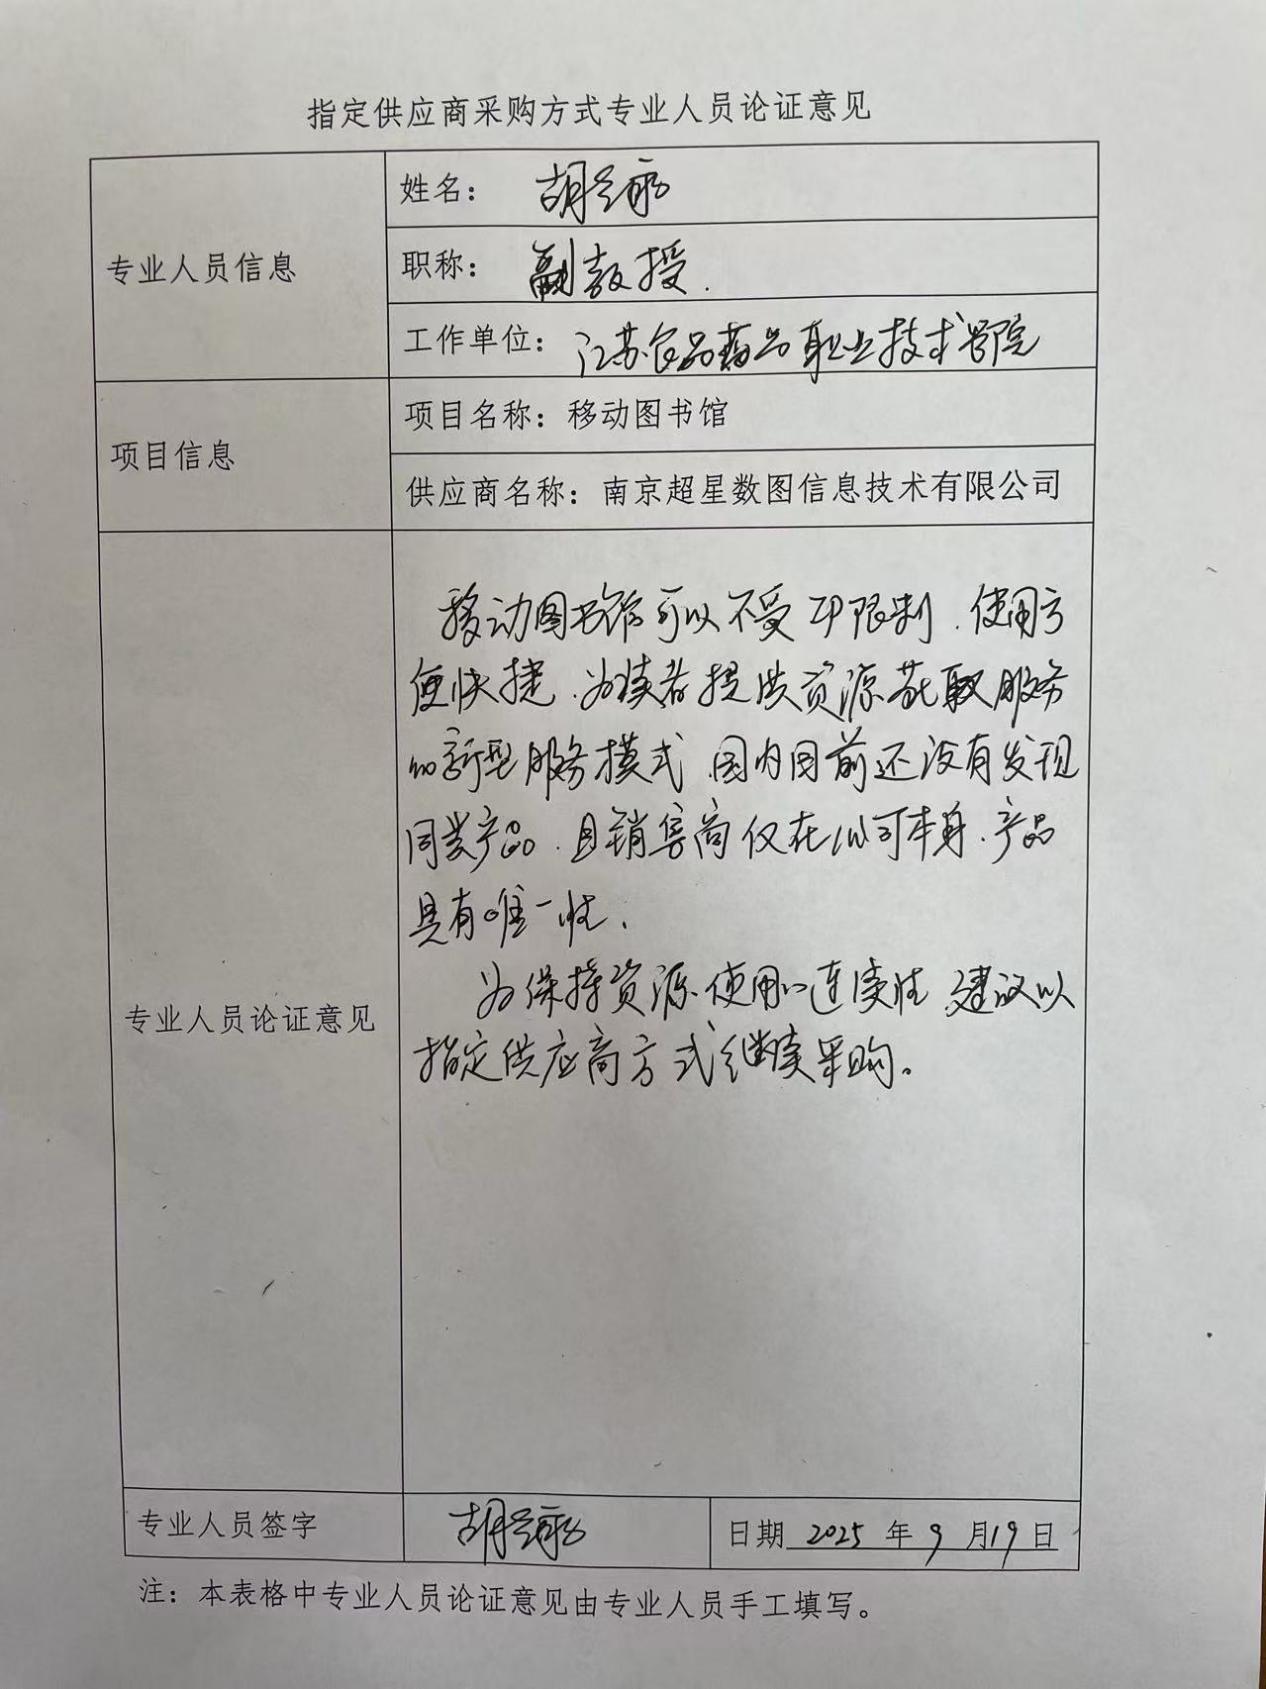 指定供应商采购方式专业人员论证意见
专业人员信息
姓名: 胡
职称: 副教授.
工作单位: 江苏食品药品职业技术学院
项目信息
项目名称: 移动图书馆
供应商名称: 南京超星数图信息技术有限公司
专业人员论证意见
移动图书馆可以不受IP限制、使用方
便快捷、为读者提供资源获取服务
的新型服务模式 国内目前还没有发现
同类产品、且销售商仅在公司本身、产品
具有唯一性、
为保持资源使用的连续性 建议以
指定供应商方式继续采购。
专业人员签字
胡
日期 2025 年 9 月 19 日
注: 本表格中专业人员论证意见由专业人员手工填写。